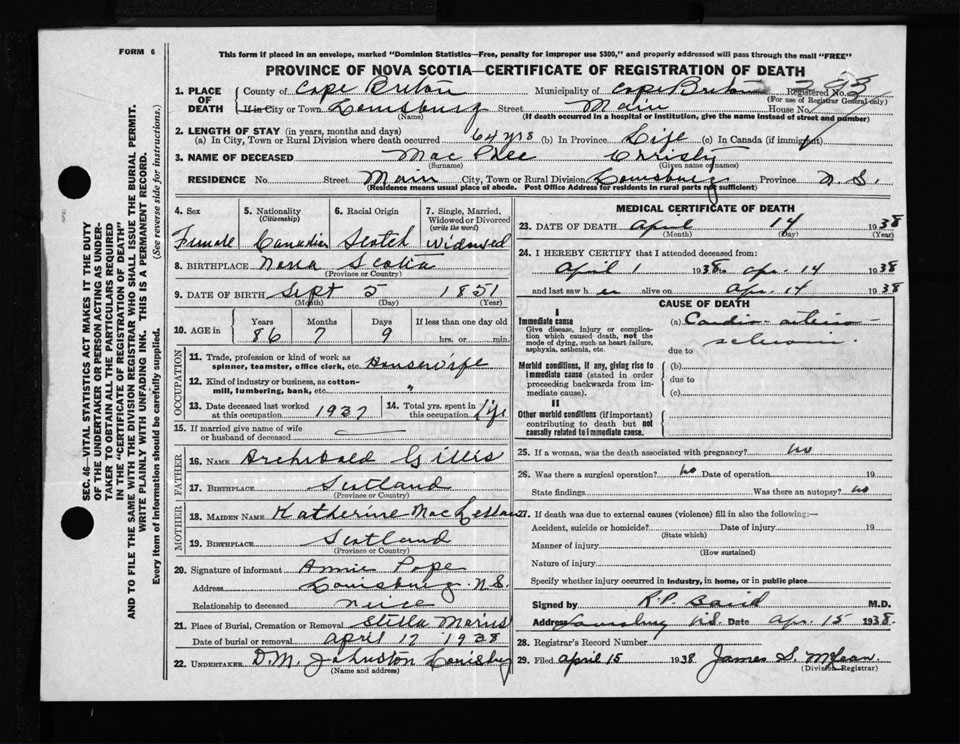 FORM 6
This form if placed in an envelope, marked "Dominion Statistics—Free, penalty for improper use $300," and properly addressed will pass through the mail "FREE"
PROVINCE OF NOVA SCOTIA—CERTIFICATE OF REGISTRATION OF DEATH
1. PLACE OF DEATH
County of Cape Breton Municipality of Cape Breton Registered No.
(For use of Registrar General only)
If in City or Town Louisburg Street Main House No.
(Name) (If death occurred in a hospital or institution, give the name instead of street and number)
2. LENGTH OF STAY (in years, months and days)
(a) In City, Town or Rural Division where death occurred 64 yrs (b) In Province Life (c) In Canada (if immigrant)
3. NAME OF DECEASED Mac Phee
(Surname) (Given name or names)
RESIDENCE No. Street Main City, Town or Rural Division Louisburg Province N.S.
(Residence means usual place of abode. Post Office Address for residents in rural parts not sufficient)
4. Sex Female
5. Nationality (Citizenship) Canadian
6. Racial Origin Scotch
7. Single, Married, Widowed or Divorced (write the word) Widowed
8. BIRTHPLACE Nova Scotia
(Province or Country)
9. DATE OF BIRTH Sept 5 1851
(Month) (Day) (Year)
10. AGE in Years 86 Months 7 Days 9 If less than one day old hrs. or min.
OCCUPATION
11. Trade, profession or kind of work as spinner, teamster, office clerk, etc. Housewife
12. Kind of industry or business, as cotton-mill, lumbering, bank, etc. "
13. Date deceased last worked at this occupation 1937
14. Total yrs. spent in this occupation life
15. If married give name of wife or husband of deceased
FATHER
16. NAME Archibald Gillis
17. BIRTHPLACE Scotland
(Province or Country)
MOTHER
18. MAIDEN NAME Katherine Mac Lellan
19. BIRTHPLACE Scotland
(Province or Country)
20. Signature of informant Annie Pope
Address Louisburg N.S.
Relationship to deceased niece
21. Place of Burial, Cremation or Removal Stella Maris
Date of burial or removal April 17 1938
22. UNDERTAKER D.M. Johnston
(Name and address)
MEDICAL CERTIFICATE OF DEATH
23. DATE OF DEATH April 14 1938
(Month) (Day) (Year)
24. I HEREBY CERTIFY that I attended deceased from:
April 1 1938 to Apr. 14 1938
and last saw h er alive on Apr. 14 1938
CAUSE OF DEATH
I
Immediate cause
Give disease, injury or complication which caused death, not the mode of dying, such as heart failure, asphyxia, asthenia, etc.
(a) Cardio-
due to
Morbid conditions, if any, giving rise to immediate cause (stated in order proceeding backwards from immediate cause).
(b)
due to
(c)
II
Other morbid conditions (if important) contributing to death but not causally related to immediate cause.
25. If a woman, was the death associated with pregnancy? no
26. Was there a surgical operation? no Date of operation 19
State findings Was there an autopsy? no
27. If death was due to external causes (violence) fill in also the following:—
Accident, suicide or homicide? Date of injury 19
(State which)
Manner of injury
(How sustained)
Nature of injury
Specify whether injury occurred in industry, in home, or in public place
Signed by R.P. Baird M.D.
Address Louisburg N.S. Date Apr. 15 1938.
28. Registrar's Record Number
29. Filed April 15 1938 James S. McLean.
(Division Registrar)
SEC. 46—VITAL STATISTICS ACT MAKES IT THE DUTY
OF THE UNDERTAKER OR PERSON ACTING AS UNDER-
TAKER TO OBTAIN ALL THE PARTICULARS REQUIRED
IN THE "CERTIFICATE OF REGISTRATION OF DEATH"
AND TO FILE THE SAME WITH THE DIVISION REGISTRAR WHO SHALL ISSUE THE BURIAL PERMIT.
WRITE PLAINLY WITH UNFADING INK. THIS IS A PERMANENT RECORD.
Every item of information should be carefully supplied. (See reverse side for instructions.)